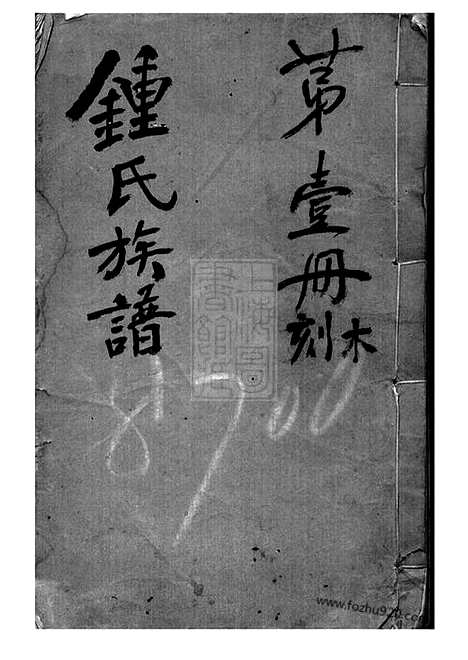 第壹册
木刻
鍾氏族譜
8700
上海圖書館藏
www.fozhu920.com